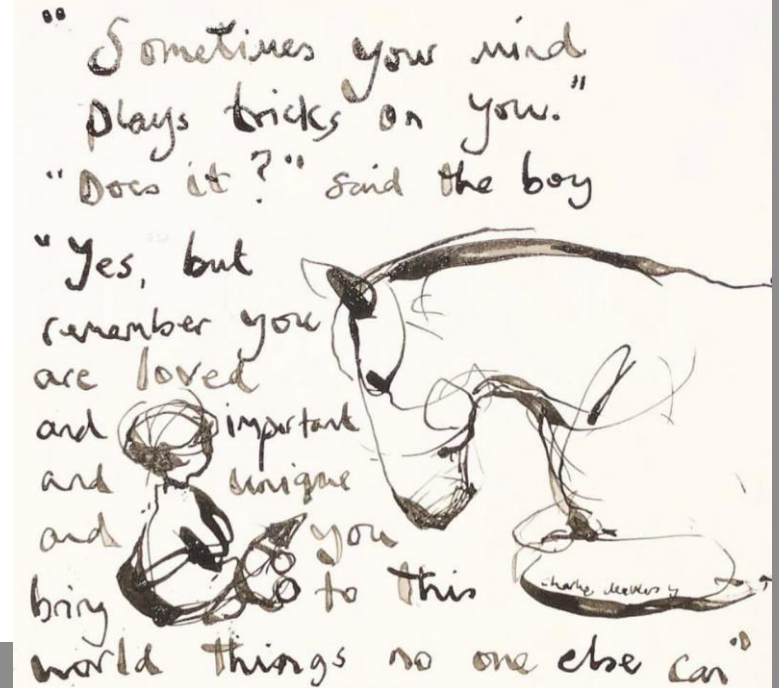 " Sometimes your mind
plays tricks on you."
"Does it?" said the boy
"Yes, but
remember you
are loved
and important
and unique
and you
bring to this
world things no one else can"